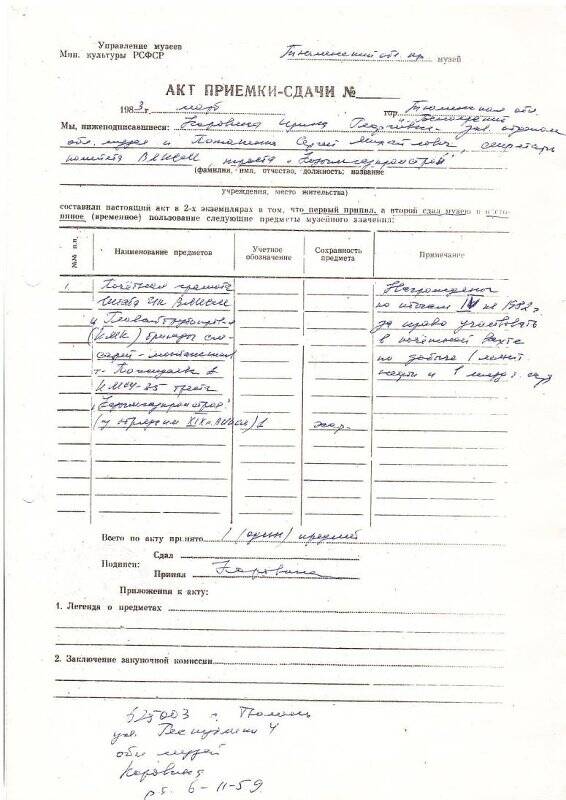 Управление музеев
Мин. культуры РСФСР
Тюменский обл. музей
АКТ ПРИЕМКИ-СДАЧИ №
1983 г. март гор. Тюменская обл.
Мы, нижеподписавшиеся: Коровина Ирина Георгиевна зав. отделом
обл. музея и Сергей Михайлович, секретарь
комитета ВЛКСМ треста
(фамилия, имя, отчество, должность; название
учреждения, место жительства)
составили настоящий акт в 2-х экземплярах в том, что первый принял, а второй сдал музею в посто-
янное (временное) пользование следующие предметы музейного значения:
№№ п.п.
Наименование предметов
Учетное обозначение
Сохранность предмета
Примечание
1. Почётная грамота
штаба ЦК ВЛКСМ
и
(КМК) бригады сле-
сарей-монтажников
т. в
КМСУ-25 треста
XIX ВЛКСМ) 1 хор.
Награждены
по итогам IV кв 1982 г.
за право участвовать
в почётной вахте
по добыче 1 милл.
нефти и 1 млрд. газа
Всего по акту принято 1 (один) предмет
Подписи:
Сдал
Принял Коровина
Приложения к акту:
1. Легенда о предметах
2. Заключение закупочной комиссии
625003 г. Тюмень
ул. Республики 4
обл музей
Коровина
р.т. 6-11-59